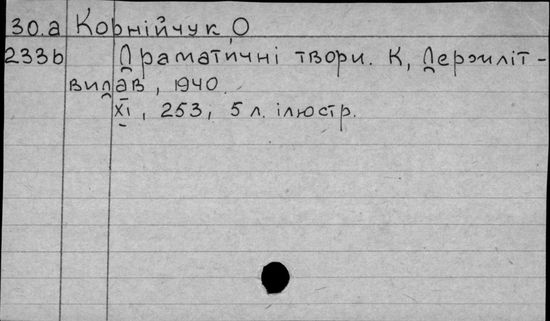 30.а Корнійчук, О
233b Драматичні твори. К, Держліт-
видав, 1940.
XI, 253, 5 л. ілюстр.